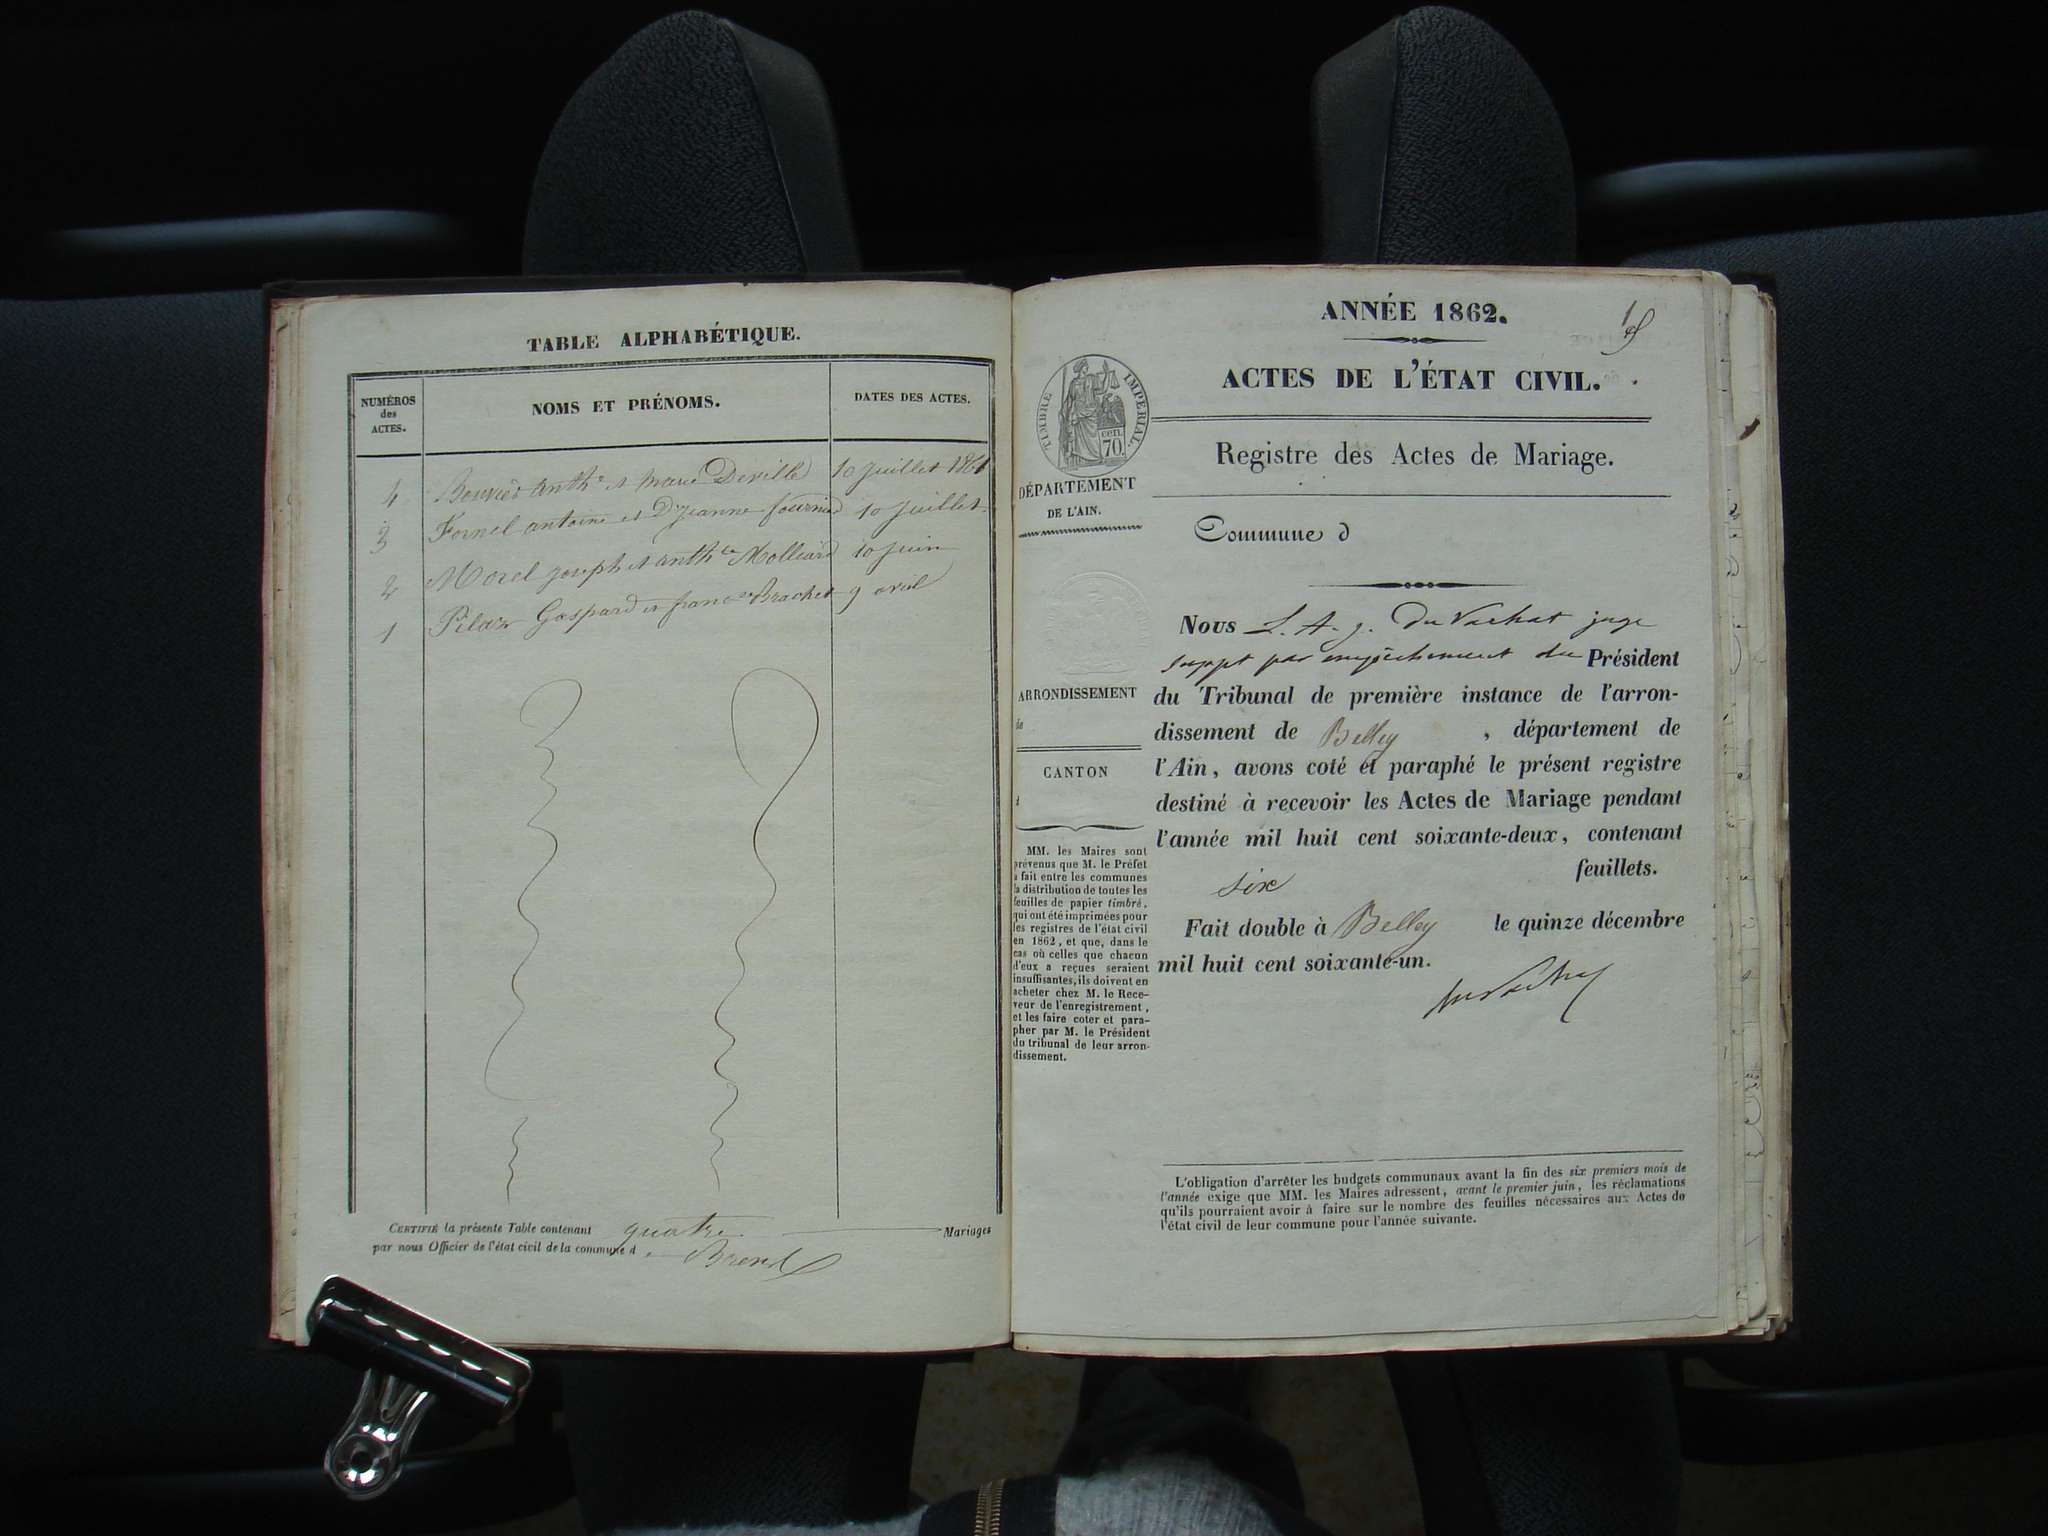 TABLE ALPHABÉTIQUE.
NUMÉROS
des
ACTES.
NOMS ET PRÉNOMS.
DATES DES ACTES.
4 Bouvier anth.e et marie Deville 10 juillet 1861
3 Fornel antoine et D. jeanne fournier 10 juillet
2 Morel joseph et anth.te Molliard 10 juin
1 Pilaz Gaspard et franc.se Brachet 9 avril
CERTIFIÉ la présente Table contenant quatre Mariages
par nous Officier de l'état civil de la commune d
ANNÉE 1862.
ACTES DE L'ÉTAT CIVIL.
TIMBRE IMPÉRIAL.
cen.
70.
DÉPARTEMENT
DE L'AIN.
Registre des Actes de Mariage.
Commune d
Nous L. A. J. Du Vachat juge
suppt par empêchement du Président
du Tribunal de première instance de l'arron-
dissement de Belley , département de
l'Ain, avons coté et paraphé le présent registre
destiné à recevoir les Actes de Mariage pendant
l'année mil huit cent soixante-deux, contenant
six feuillets.
Fait double à Belley le quinze décembre
mil huit cent soixante-un.
DuVachat
ARRONDISSEMENT
de
CANTON
d
MM. les Maires sont
prévenus que M. le Préfet
a fait entre les communes
la distribution de toutes les
feuilles de papier timbré,
qui ont été imprimées pour
les registres de l'état civil
en 1862, et que, dans le
cas où celles que chacun
d'eux a reçues seraient
insuffisantes, ils doivent en
acheter chez M. le Rece-
veur de l'enregistrement,
et les faire coter et para-
pher par M. le Président
du tribunal de leur arron-
dissement.
L'obligation d'arrêter les budgets communaux avant la fin des six premiers mois de
l'année exige que MM. les Maires adressent, avant le premier juin, les réclamations
qu'ils pourraient avoir à faire sur le nombre des feuilles nécessaires aux Actes de
l'état civil de leur commune pour l'année suivante.